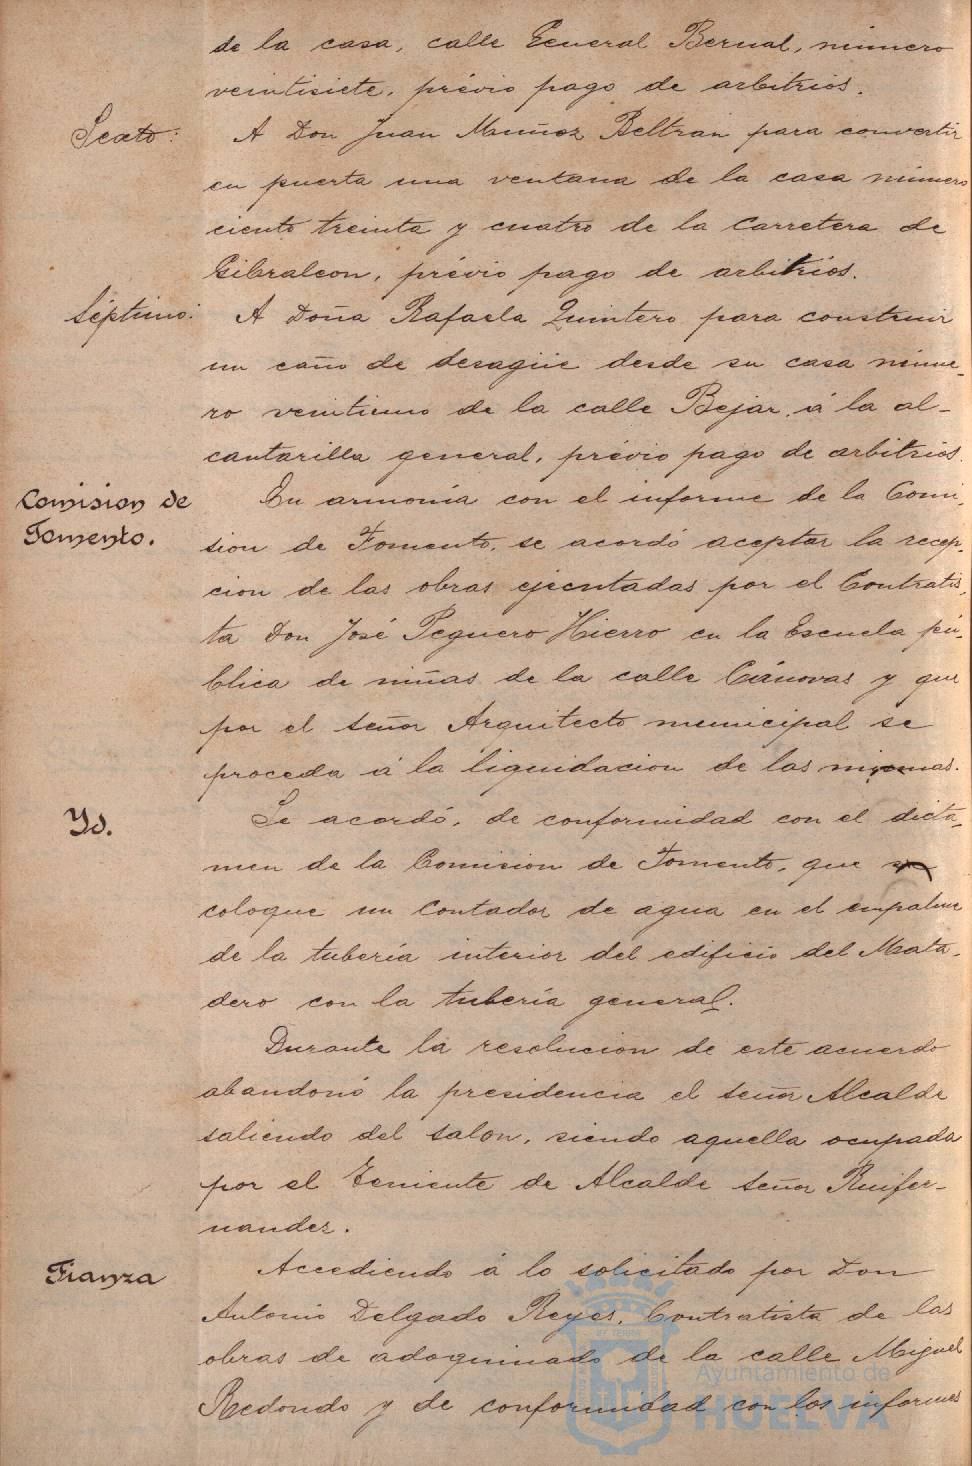 de la casa, calle General Bernal, número
veintisiete, prévio pago de arbitrios.
Sexto:
A Don Juan Muñoz Beltran para convertir
en puerta una ventana de la casa número
ciento treinta y cuatro de la Carretera de
Gibraleon, prévio pago de arbitrios.
Séptimo:
A Doña Rafaela Quintero para construir
un caño de desagüe desde su casa núme-
ro veintiuno de la calle Bejar, á la al-
cantarilla general, prévio pago de arbitrios.
Comision de
Fomento.
En armonía con el informe de la Comi-
sion de Fomento, se acordó aceptar la recep-
cion de las obras ejecutadas por el Contratis-
ta Don José Peguero Hierro en la Escuela pú-
blica de niñas de la calle Cánovas y que
por el señor Arquitecto municipal se
proceda á la liquidacion de las mismas.
Yd.
Se acordó, de conformidad con el dictá-
men de la Comision de Fomento, que se
coloque un Contador de agua en el empalme
de la tubería interior del edificio del Mata-
dero con la tubería general.
Durante la resolucion de este acuerdo
abandonó la presidencia el señor Alcalde
saliendo del salon, siendo aquella ocupada
por el Teniente de Alcalde señor Ruifer-
nandez.
Fianza
Accediendo á lo solicitado por Don
Antonio Delgado Reyes, Contratista de las
obras de adoquinado de la calle Miguel
Redondo y de conformidad con los informes
Ayuntamiento de
HUELVA